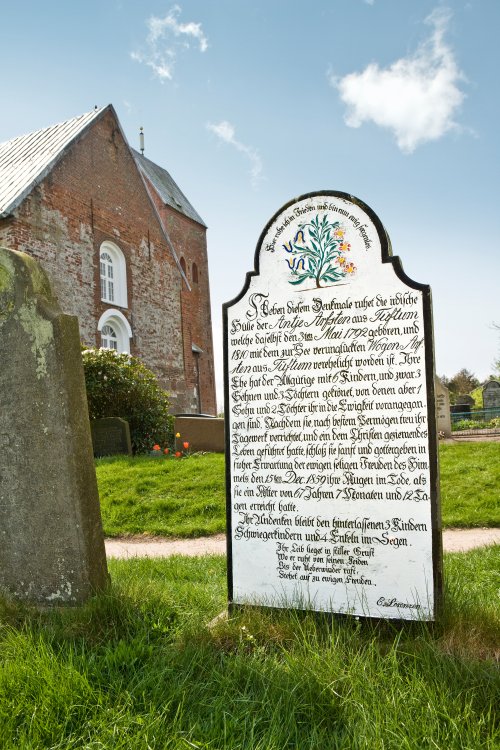 Hier ruhe ich in Frieden und bin nun ewig
Neben diesem Denkmale ruhet die irdische
Hülle der Antje Arfsten aus Tüftum
welche daselbst den 3ten Mai 1792 geboren, und
1810 mit dem zur See verunglückten Wögen Arf-
sten aus Tüftum verehelicht worden ist. Ihre
Ehe hat der Allgütige mit 6 Kindern, und zwar 3
Söhnen und 3 Töchtern gekrönet, von denen aber 1
Sohn und 2 Töchter ihr in die Ewigkeit vorangegan-
gen sind. Nachdem sie nach bestem Vermögen treu ihr
Tagewerk verrichtet, und ein dem Christen geziemendes
Leben geführet hatte, schloß sie sanft und gottergeben in
froher Erwartung der ewigen seligen Freuden des Him-
mels den 15ten Dec. 1859 ihr Augen im Tode, als
sie ein Alter von 67 Jahren 7 Monaten und 12 Ta-
gen erreicht hatte.
Ihr Andenken bleibt den hinterlassenen 3 Kindern
Schwiegerkindern und 4 Enkeln im Segen.
Ihr Leib lieget in stiller Gruft
Wo er ruht von seinen Leiden
Bis der Ueberwinder ruft.
Stehet auf zu ewigen Freuden.